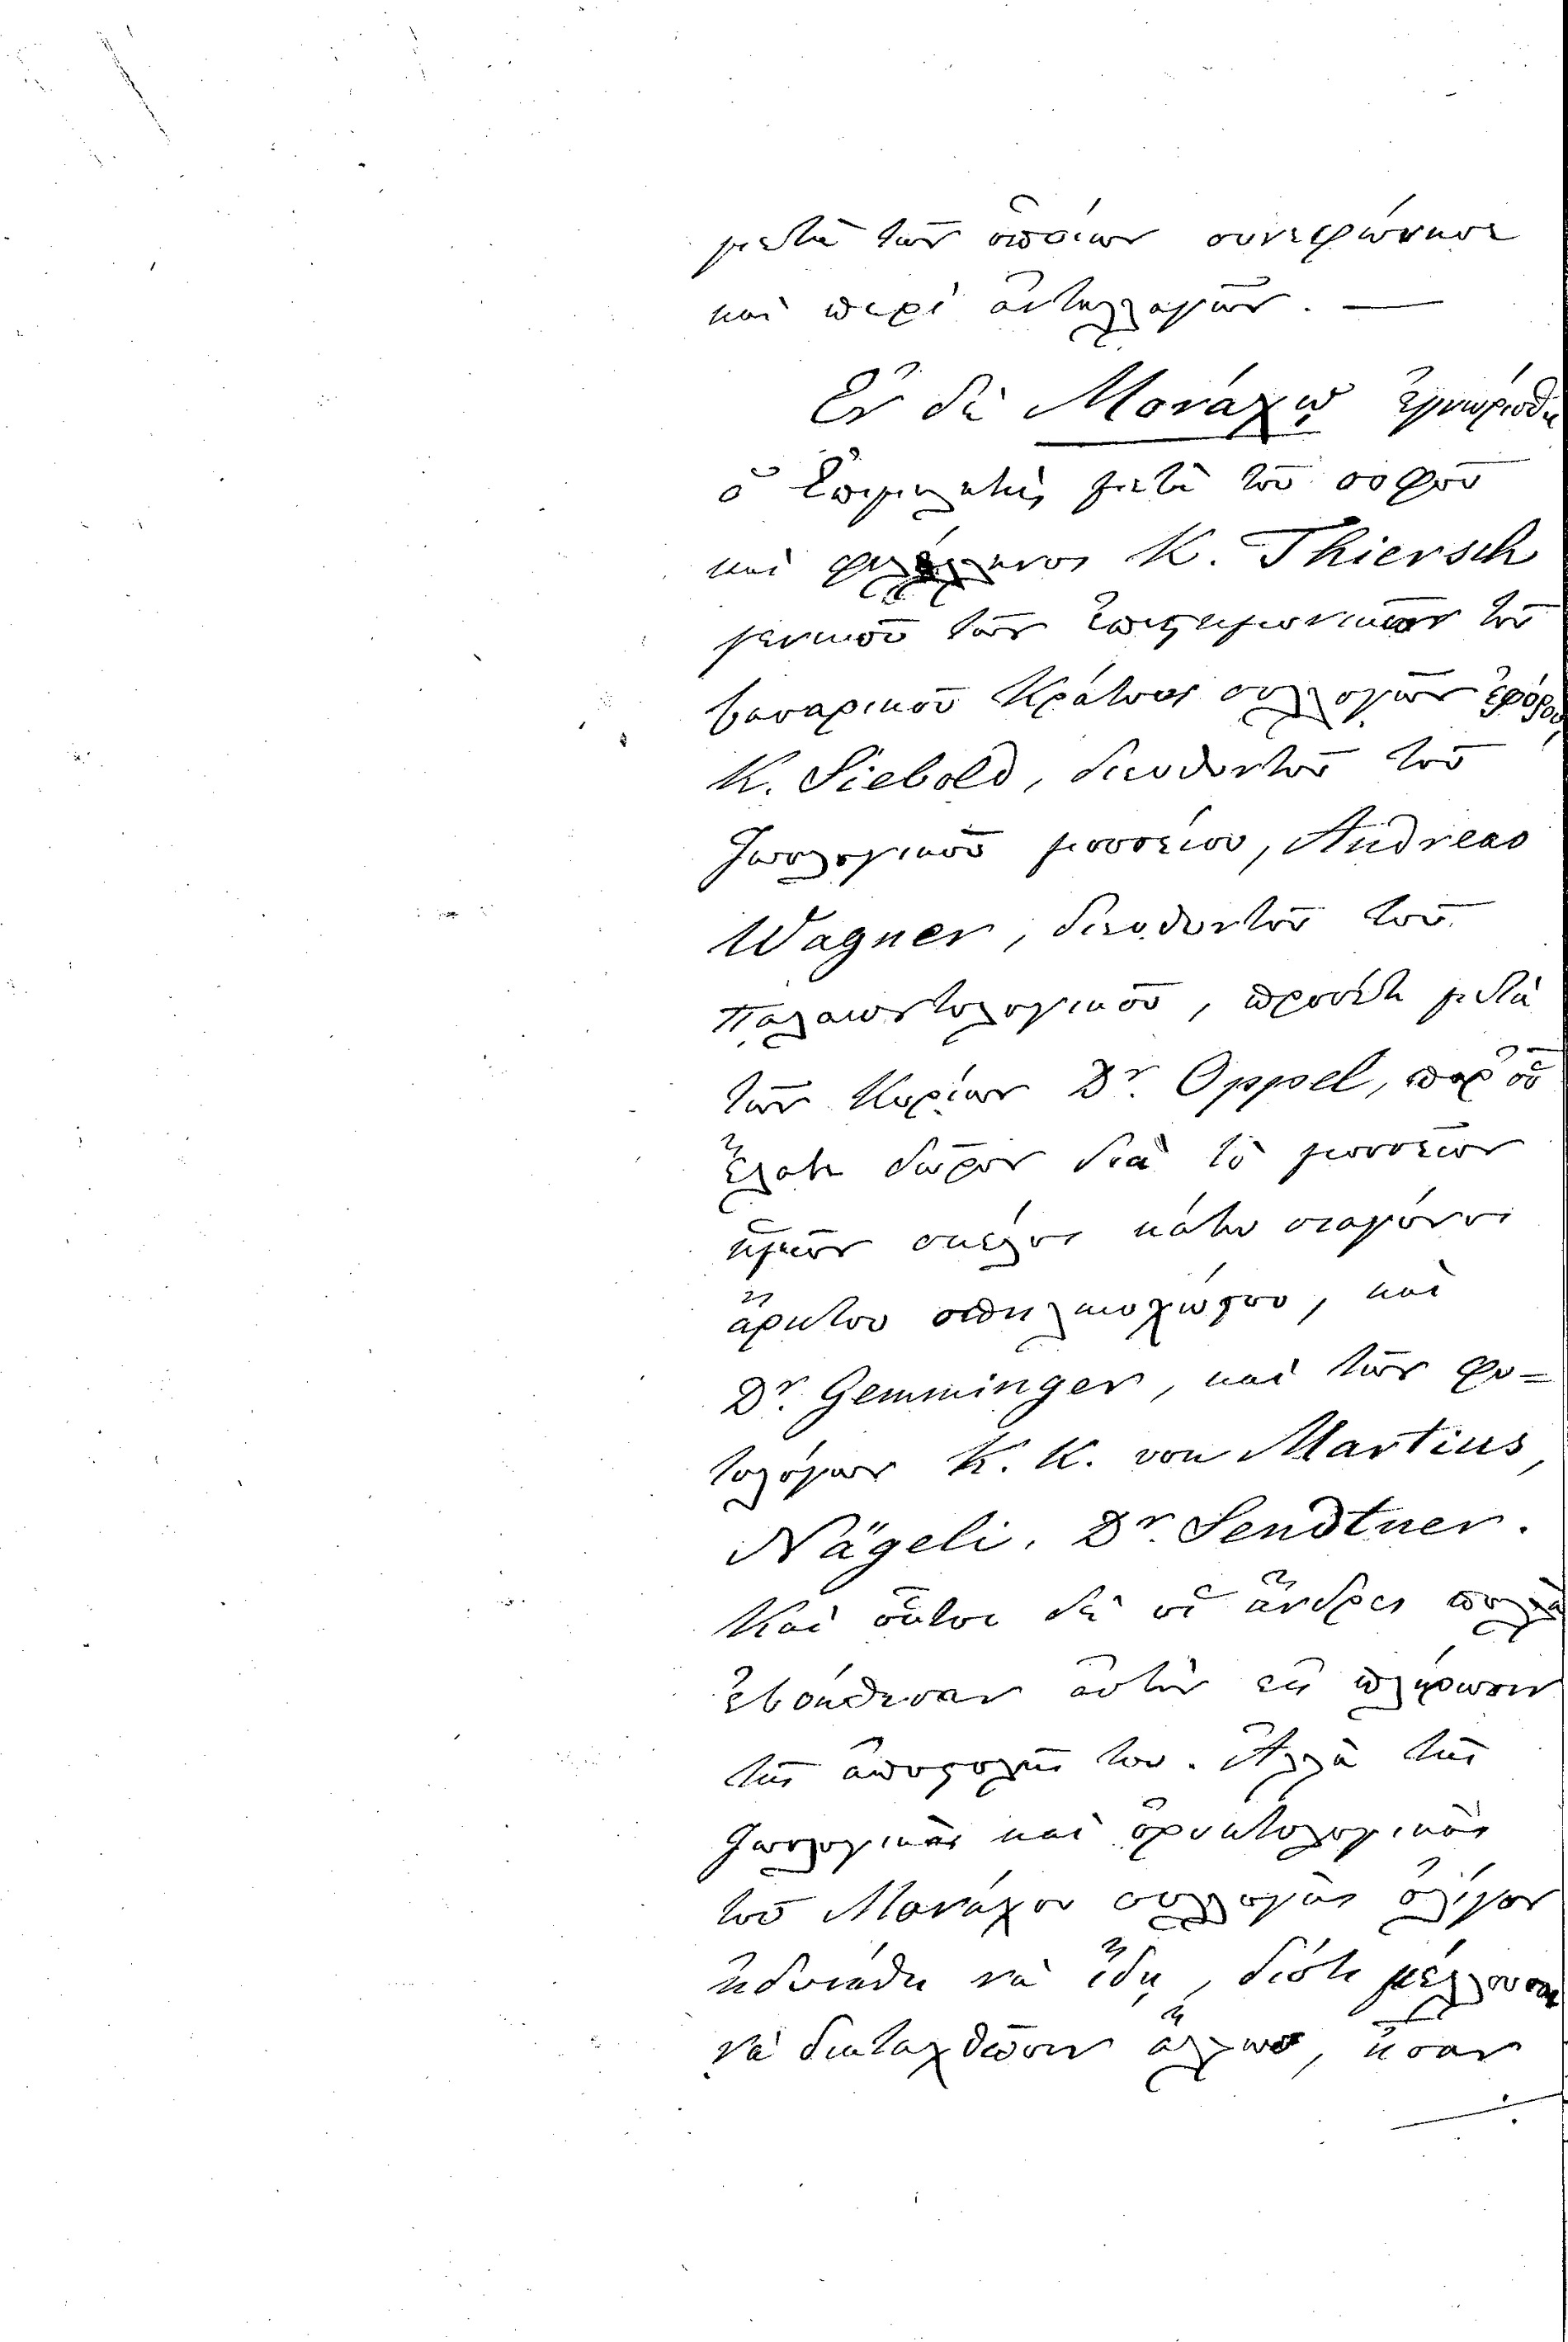 μετὰ τῶν ὁποίων συνεφώνησε
καὶ περὶ ἀνταλλαγῶν. —
Ἐν δὲ Μονάχῳ ἐγνωρίσθη
ὁ Ἐπιμελητὴς μετὰ τοῦ σοφοῦ
καὶ φιλέλληνος Κ. Thiersch
γενικοῦ τῶν ἐπιστημονικῶν τοῦ
βαυαρικοῦ Κράτους συλλογῶν ἐφόρου,
Κ. Siebold, διευθυντοῦ τοῦ
ζωολογικοῦ μουσείου, Andreas
Wagner, διευθυντοῦ τοῦ
παλαιοντολογικοῦ, προσέτι μετὰ
τῶν Κυρίων Dr. Oppel, παρ' οὗ
ἔλαβε δῶρον διὰ τὸ μουσεῖον
ἡμῶν σκέλος κάτω σιαγόνος
ἄρκτου σπηλαιοχώρου, καὶ
Dr. Gemminger, καὶ τῶν φυ=
τολόγων Κ. Κ. von Martius,
Nägeli, Dr. Sendtner.
Καὶ οὗτοι δὲ οἱ ἄνδρες πολλὰ
ἐβοήθησαν αὐτὸν εἰς πλήρωσιν
τῆς ἀποστολῆς του. Ἀλλὰ τὰς
ζωολογικὰς καὶ ὀρυκτολογικὰς
τοῦ Μονάχου συλλογὰς ὀλίγον
ἠδυνήθη νὰ ἴδῃ, διότι μέλλουσαι
νὰ διαταχθῶσιν ἄλλως, ἦσαν